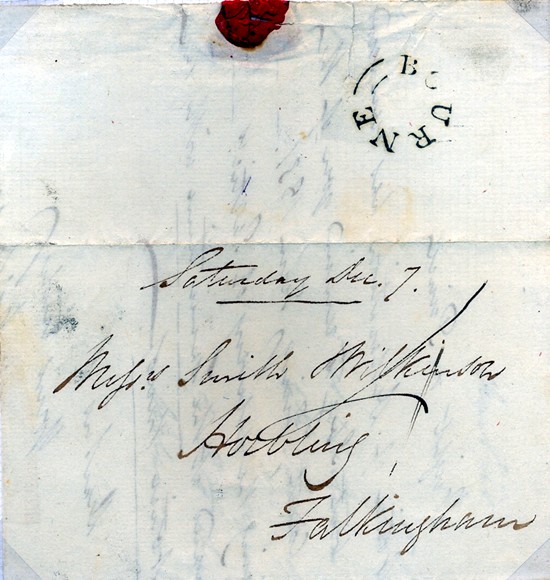 BOURNE
Saturday Dec. 7.
Messrs Smith Wilkinson
Horbling
Falkingham